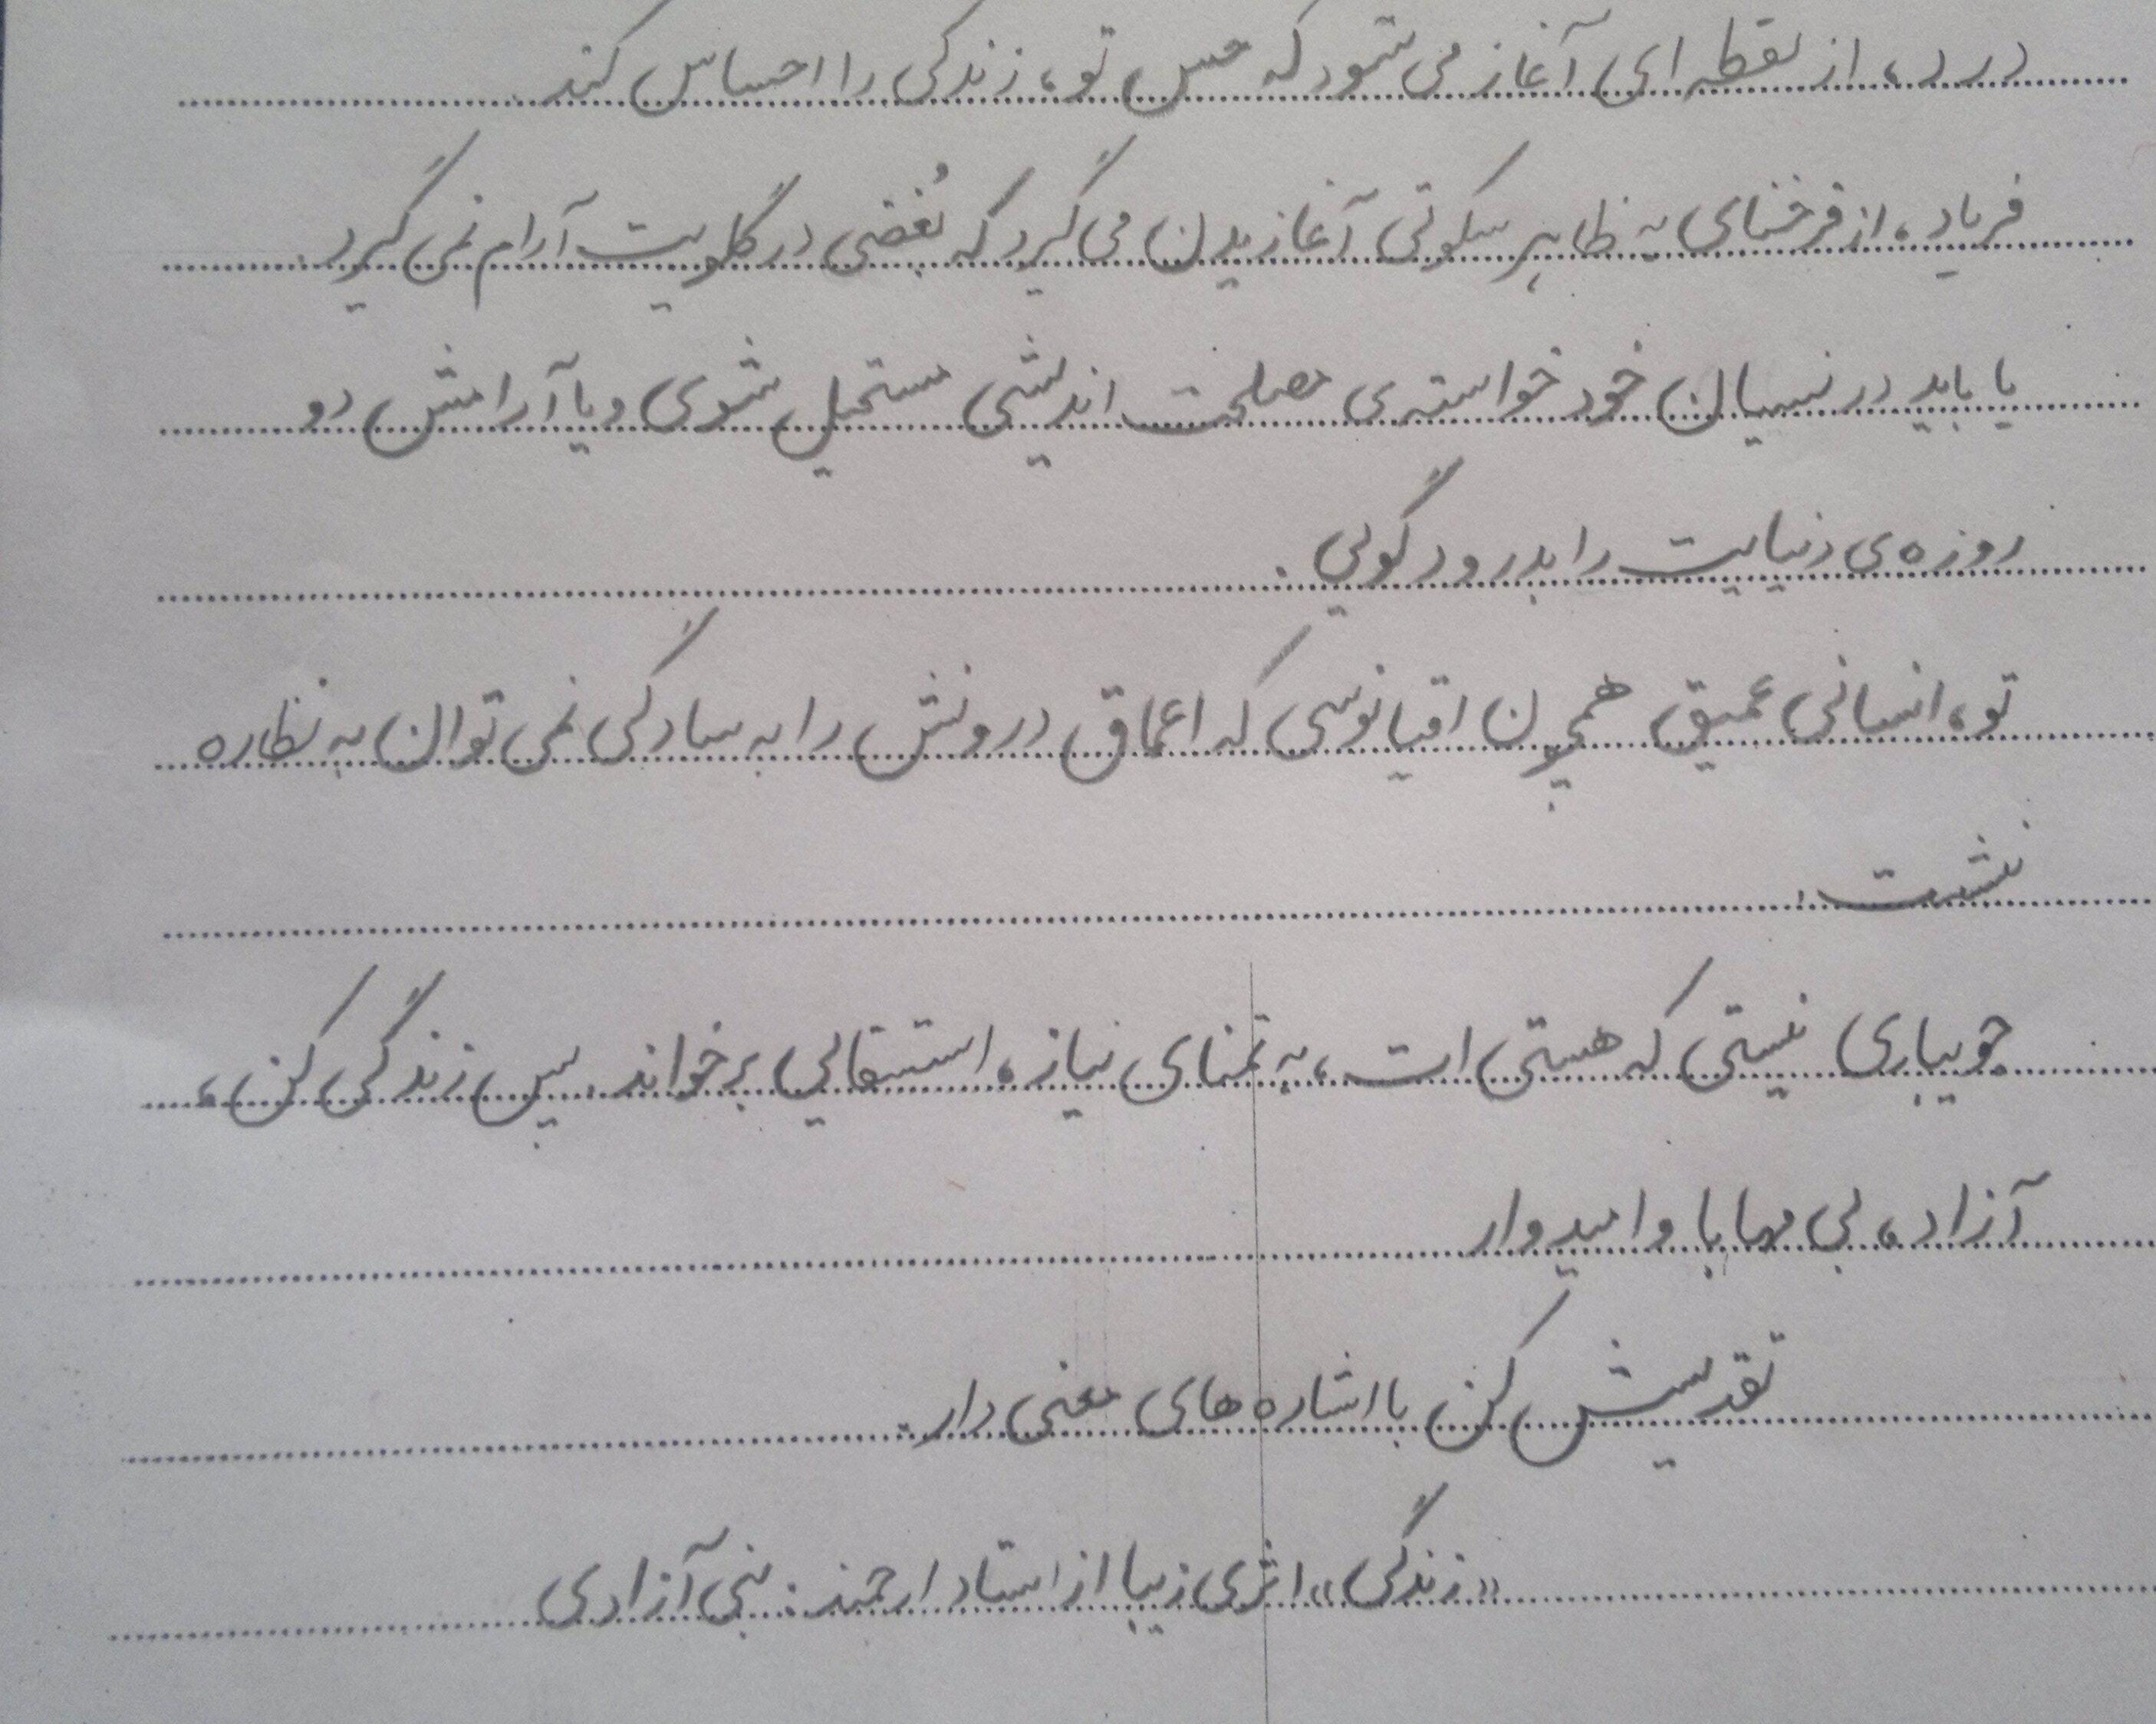 درد، از نقطه ای آغاز می شود که حس تو، زندگی را احساس کند.
فریاد، از فرخنای به ظاهر سکوتی آغازیدن می گیرد که بُغضی در گلویت آرام نمی گیرد.
یا باید در نسیان خود خواسته ی مصلحت اندیشی مستحیل شوی و یا آرامش دو
روزه ی دنیایت را بدرود گویی.
تو، انسانی عمیق همچون اقیانوسی که اعماق درونش را به سادگی نمی توان به نظاره
نشست.
جویباری نیستی که هستی ات، به تمنای نیاز، استسقایی برخواند. پس زندگی کن،
آزاد، بی مهابا و امیدوار
تقدیسش کن با اشاره های معنی دار.
«زندگی» اثری زیبا از استاد ارجمند: بنی آزادی